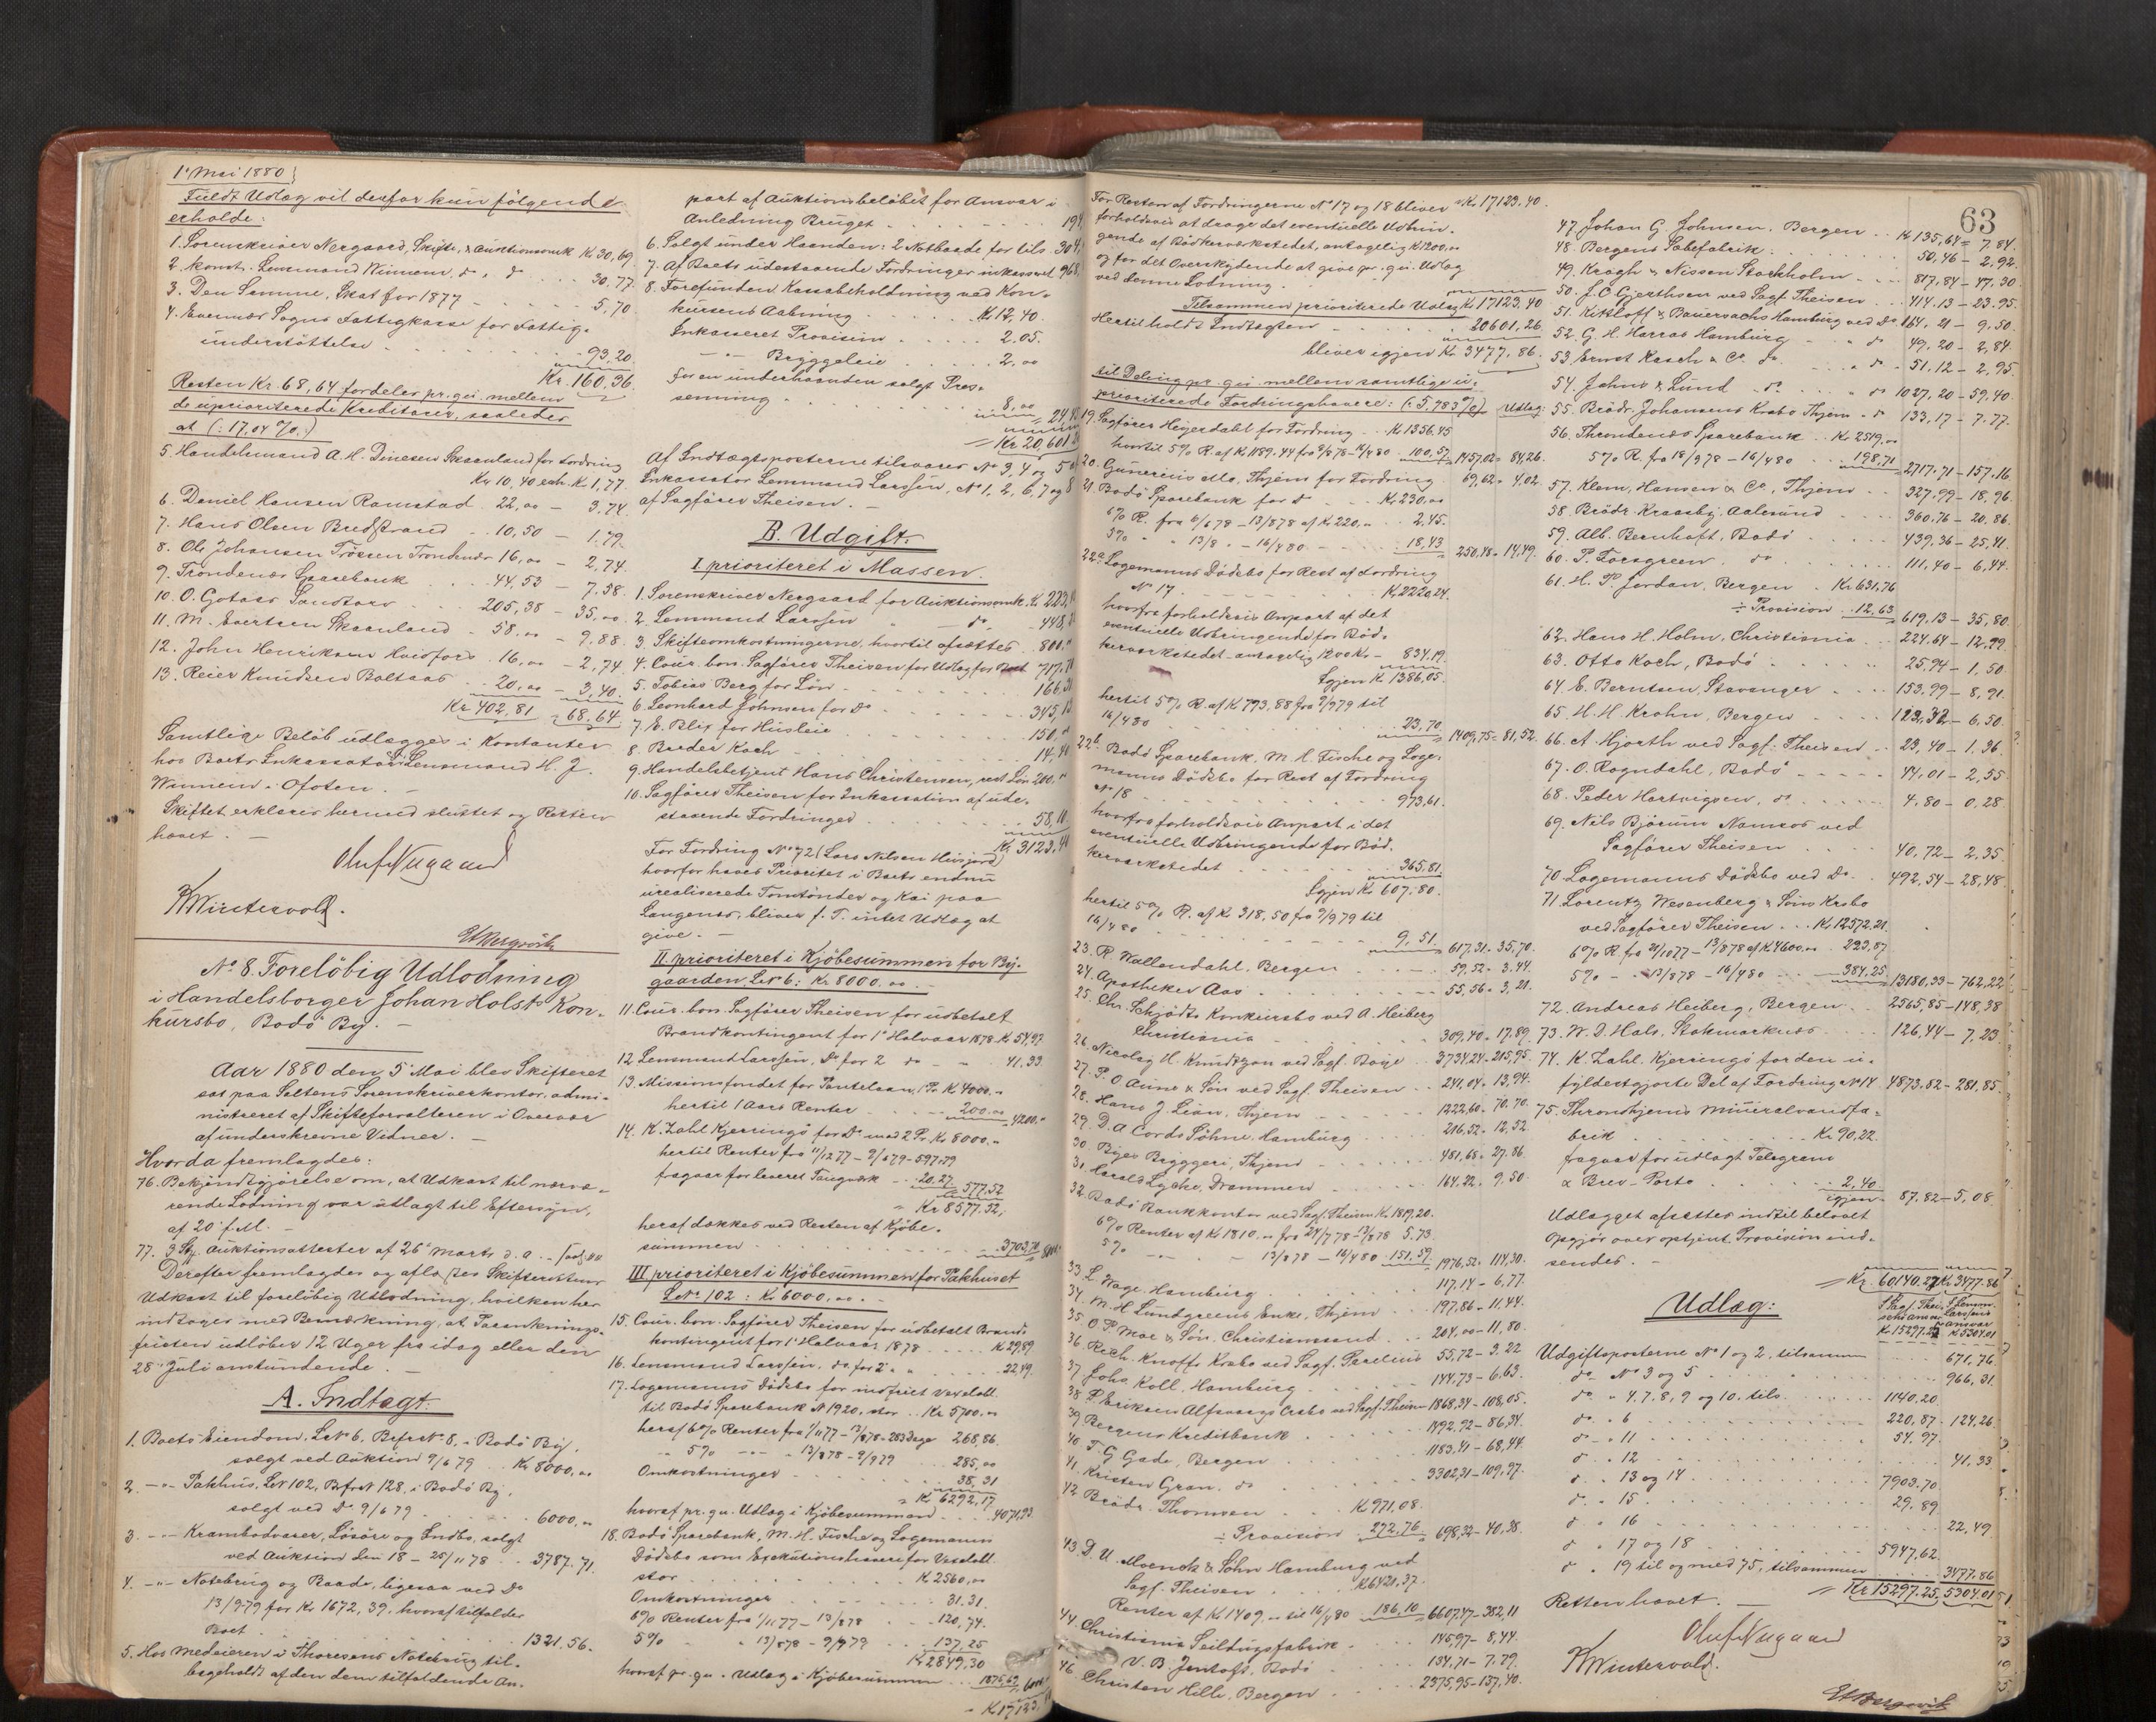 1' Mai 1880
Fuldt Udlæg vil derfor kun følgende
erholde:
1. Sorenskriver Nergaard, Skifte- & Auctionsomk Kr 30,69.
2. Konst. Lensmand Winnem, do, do 30.77.
3. Den Samme, Skat for 1877 5,70
4. Evenæs Sogns Fattigkasse for Fattig-
understøttelse 93.20
Kr. 160,36.
Resten Kr. 68,64 fordeles pr. qvi. mellem
de uprioriterede Kreditorer, saaledes
at (: 17,04 %:)
5. Handelsmand A. H. Dinesen Skaanland for Fordring
Kr 10,40 erh. Kr 1,77.
6. Daniel Hansen Ramstad 22,00 - 3,74.
7. Hans Olsen Bredstrand 10,50 - 1.79.
8. Ole Johansen Trøssen Trondenæs 16,00 - 2,74.
9. Trondenæs Sparebank 44,53 - 7,58.
10. O. Gotaas Sandtorv 205,38 - 35,00
11. M. Evertsen Skaanland 58,00 - 9,88
12. John Henriksen Kvidfors 16,00 - 2,74
13. Reier Knudsen Boltaas 20,00 - 3,40.
Kr 402,81 - 68,64.
Samtlige Beløb udlægges i Kontanter
hos Boets Inkassator Lensmand H. J.
Winnem i Ofoten. -
Skiftet erklæres hermed sluttet og Retten
hævet. -
Oluf Nugaard
K Wintervold.
E Bergsvik
No 8. Foreløbig Udlodning
i Handelsborger Johan Holsts Kon-
kursbo, Bodø By. -
Aar 1880 den 5' Mai blev Skifteret
sat paa Saltens Sorenskriverkontor, admi-
nistreret af Skifteforvalteren i Overvær
af underskrevne Vidner. -
Hvorda fremlagdes:
76. Bekjendtgjørelse om, at Udkast til nærvæ-
rende Lodning var utlagt til Eftersyn,
af 20' f. M. -
77. 3 St. Auktionsattester af 26' Marts d. a. -
Derefter fremlagdes og aflæstes Skifterettens
Udkast til foreløbig Udlodning, hvilken her
indtages med Bemærkning, at Paaanknings-
fristen udløber 12 Uger fra idag eller den
28' Juli anstundende. -
A. Indtægt:
1. Boets Eiendom, LNo 6, BrfrNo 8, i Bodø By,
solgt ved Auktion 9/6 79 Kr 8000,00
2. - " - Pakhus, LNo 102, BrfrNo 128, i Bodø By,
solgt ved Do 9/6 79 6000,00
3. - " - Krambodvarer, Løsøre og Indbo, solgt
ved Auktion den 18 - 25/11 78 3787.71.
4. - " - Notebrug og Baade, ligesaa ved Do
13/9 79 for Kr 1672,39, hvoraf tilfalder
Boet 1321,56.
5. Hos Medeieren i Thoresens Notebrug til-
bageholdt af den dem tilfaldende An-
part af Auktionsbeløbet for Ansvar i
Anledning Bruget 194,
6. Solgt under Haanden: 2 Notbaade for tils. 304,
7. Af Boets udestaaende Fordringer inkasseret 968,
8. Forefunden Kassabeholdning ved Kon-
kursens Aabning Kr 12,40.
Inkasseret Provision 2.05.
- " - Bryggeleie 2,00
For en underhaanden solgt Pres-
senning 8,00 24,
Kr 20,601.
Af Indtægtsposterne tilsvarer No 3, 4 og 5
Inkassator Lensmand Larssen, No 1, 2, 6, 7 og 8
af Sagfører Theisen. -
B. Udgift.
I prioriteret i Massen.
1. Sorenskriver Nergaard for Auktionsomk. Kr 223,
2. Lensmand Larssen - " - do. 448,
3. Skifteomkostningerne, hvortil afsættes 800,
4. Cour. bon. Sagfører Theisen for Udlæg for Boet 717,
5. Tobias Berg for Løn 166,
6. Leonhard Johnsen for Do 345,
7. E. Blix for Husleie 150,
8. Bøder Koch 14,40
9. Handelsbetjent Hans Christensen, rest Løn 200,
10. Sagfører Theisen for Inkassation af ude-
staaende Fordringer 58,10.
Kr 3123,
For Fordring No 72 (Lars Nilsen Husjord)
hvorfor haves Prioritet i Boets endnu
urealiserede Tomtønder og Kai paa
Langenes, bliver f. T. intet Udlæg at
give. -
II prioriteret i Kjøbesummen for By-
gaarden LNo 6: Kr 8000,00. -
11. Cour. bon. Sagfører Theisen for udbetalt
Brandkontingent for 1' Halvaar 1878 Kr 54,97
12. Lensmand Larssen, Do for 2' do - 41,33
13. Missionsfondet for Pantelaan, Pr. Kr 4000.00
hertil 1 Aars Renter 200.00 4200."
14. K. Zahl Kjerringø for Do med 2 Pr. Kr 8000.00
hertil Renter fra 11/12 77 - 9/6 79 - 597.79
fragaar for leveret Tougværk 20.27 577.52
Kr 8577.52,
heraf dækkes ved Resten af Kjøbe-
summen 3703,70 8000.
III prioriteret i Kjøbesummen for Pakhuset
LNo 102: Kr 6000,00. -
15. Cour. bon. Sagfører Theisen for udbetalt Brand-
kontingent for 1' Halvaar 1878 Kr 29,89
16. Lensmand Larssen, do for 2' " 22,49.
17. Lagemanns Dødsbo for indfriet Vexelobl.
til Bodø Sparebank No 1920, stor Kr 5700,00
heraf 6% Renter fra 1/11 77 - 13/8 78 - 283 Dage 268,86.
" 5% - " - 13/8 78 - 9/9 79 285,00
Omkostninger 38,31
Kr 6292,17
hvoraf pr. qu. Udlæg i Kjøbesummen 4071,93.
18. Bodø Sparebank, M. H. Fische og Lagemanns
Dødsbo som Exekutionshavere for Vexelobl.
stor Kr 2560,00
Omkostninger 31.31.
6% Renter fra 1/11 77 - 13/8 78 120,74.
5% " 13/8 78 - 9/9 79 137,25
Kr 2849,30
hvoraf pr. qu. Udlæg i Kjøbesummen 1875,69 6000
Kr 17123.
63
For Resten af Fordringerne No 17 og 18 bliver Kr. 17123.40.
forholdsvis at drage det eventuelle Udbrin-
gende af Bødkerværkstedet, antagelig Kr 1200,00
og for det Overskydende at give pr. qui. Udlæg
ved denne Lodning.
Tilsammen prioriterede Udlæg Kr 17123.40
Hertil holdt Indtægten 20601,26.
bliver igjen Kr 3477,86.
til Deling pr. qui. mellem samtlige u-
prioriterede Fordringshavere: (: 5,783 %:) Udlæg:
19. Sagfører Heyerdahl for Fordring Kr 1356.45
hvortil 5% R. af Kr 1189.44 fra 9/8 78 - 16/4 80 100,57 1457,02 = 84,26.
20. Gunerius Mo, Thjem for Fordring 69,62 = 4,02.
21. Bodø Sparebank for do Kr 230,00
6% R. fra 6/6 78 - 13/8 78 af Kr 220,00 2,45.
5% " 13/8 " - 16/4 80 18,43 250,48 = 14,49.
22a. Lagemanns Dødsbo for Rest af Fordring
No 17 Kr 2220,24.
hvorfra forholdsvis Anpart af det
eventuelle Udbringende for Bød-
kerværkstedet - antagelig 1200 Kr - 834.19.
Igjen Kr 1386,05.
hertil 5% R. af Kr 793,88 fra 9/9 79 til
16/4 80 23,70 1409,75 = 81,52.
22b. Bodø Sparebank, M. H. Fische og Lage-
manns Dødsbo for Rest af Fordring
No 18 973,61.
hvorfra forholdsvis Anpart i det
eventuelle Udbringende for Bød-
kerværkstedet 365,81.
Igjen Kr. 607,80.
hertil 5% R. af Kr. 318,50 fra 9/9 79 til
16/4 80 9,51. 617,31 = 35,70.
23. R. Wallendahl, Bergen 59,52 = 3.44.
24. Apotheker Aas 55,56 = 3,21.
25. Chr. Schjødts Konkursbo ved A. Heiberg
Christiania 309,40 = 17,89.
26. Nicolay H. Knudtzon ved Sagf. Boije 3734,24 = 215,95.
27. P. O Aune & Søn ved Sagf. Theisen 241,04 = 13,94.
28. Hans J. Lian, Thjem 1222,60 = 70.70.
29. D. A Cords Söhne, Hamburg 216,52 = 12,52
30. Byes Bryggeri, Thjem 481,65 = 27.86.
31. Harald Lyche, Drammen 164,22 = 9,50.
32. Bodø Bankkontor ved Sagf. Theisen Kr 1819,20.
6% Renter af Kr 1810,00 fra 24/7 78 - 13/8 78 5.73.
5% - " - 13/8 78 - 16/4 80 151.59 1976,52 = 114,30.
33. L. Wage, Hamburg 117,14 - 6.77.
34. M. H Lundgreens Enke, Thjem 197,86 - 11,44.
35. O. P. Moe & Søn, Christianssand 204,00 - 11,80.
36. Rich. Knoffs Krsbo ved Sagf. Parelius 55,72 - 3.22
37. Johs Koll, Hamburg 114,73 - 6,63.
38. P. Eriksen Alfsvaags Crsbo ved Sagf. Theisen 1868,34 - 108,05.
39. Bergens Kreditbank 1492,92 - 86,34.
40. F. G Gade, Bergen 1183,41 - 68,44.
41. Kristen Gran, do 3302,31 - 109,97.
42. Brødr. Thomsen Kr 971,08.
÷ Provision 272,76 698,32 - 40,38.
43. D. U. Moenck & Sohn Hamburg ved
Sagf. Theisen Kr 6421,37.
Renter af Kr 1409,00 til 16/4 80 186,10 6607,47 - 382,11
44. Christiania Seildugsfabrik 145,97 - 8,44.
V. B Jentoft, Bodø 134,71 - 7.79.
46. Christen Hille, Bergen 2375,95 - 137,40.
47. Johan G. Johnsen, Bergen Kr 135,64 = 7.84.
48. Bergens Sæbefabrik 50,46 - 2,92.
49. Kragh & Nissen Stockholm 817,84 - 47,30
50. J. C Gjerthsen ved Sagf. Theisen 414.13 - 23.95.
51. Kikloff & Bauersachs Hamburg ved Do 164,21 - 9,50.
52. G. H. Harras Hamburg " do 49,20 - 2,84.
53. Ernst Kasch & Co. do " do 51.12 - 2,95.
54. Johns & Lund do " do 1027.20 - 59,40.
55. Brødr. Johansens Krsbo Thjem " do 133,17 - 7.77.
56. Throndenæs Sparebank Kr 2519,00
5% R. fra 18/9 78 - 16/4 80 198,71 2717.71 - 157.16.
57. Klem, Hansen & Co, Thjem 327,99 - 18,96.
58. Brødr. Kraasby, Aalesund 360,76 - 20,86.
59. Alb. Bernhoft, Bodø 439,36 - 25,41.
60. P. Forsgreen, do 111,40 - 6,44.
61. H. P. Jordan, Bergen Kr 631,76
÷ Provision 12,63 619,13 - 35,80.
62. Hans H. Holm, Christiania 224.64 - 12,99
63. Otto Koch, Bodø 25,94 - 1,50.
64. E. Berntsen, Stavanger 153,99 - 8,91.
65. H. H. Krohn, Bergen 112,32 - 6,50.
66. A. Hjorth ved Sagf. Theisen 23,40 - 1,36.
67. O. Rogndahl, Bodø 44,01 - 2,55
68. Peder Hartvigsen, do 4.80 - 0,28.
69. Nils Bjørum Namsos ved
Sagfører Theisen 40,72 - 2,35.
70. Lagemanns Dødsbo ved Do 492,54 - 28,48.
71. Lorentz Wesenberg & Søns Krsbo
ved Sagfører Theisen Kr 12572.21.
6% R. fra 21/10 77 - 13/8 78 af Kr 4600,00 223,87
5% " 13/8 78 - 16/4 80 384,25 13180,33 - 762,22
72. Andreas Heiberg, Bergen 2565,85 - 148,38
73. W. D. Hals, Stokmarknæs 126,44 - 7,23
74. K. Zahl, Kjerringø for den u-
fyldestgjorte Del af Fordring No 14 4873,82 - 281,85.
75. Throndhjems Mineralvandfa-
brik Kr 90,22.
fragaar for udlagt Telegram
& Brev-Porto 2,40
igjen 87.82 - 5,08.
Udlægget afsættes indtil beløvet
Opgjør over optjent Provision ind-
sendes. -
Kr. 60140.27 Kr 3477.86
Udlæg:
I Sagf. Thei-
sens ansvar
Kr 15297.25
I Lensm.
Larssens
ansvar
Kr 5304.01
Udgiftsposterne No 1 og 2, tilsammen 671,76.
do No 3 og 5 966,31.
do " 4, 7, 8, 9 og 10, tils. 1140,20
do " 6 220,87. 124,26.
do " 11 54.97.
do " 12 41,33
do " 13 og 14 7903.70
do " 15 29.89.
do " 16 22,49
do " 17 og 18 5947,62.
do " 19 til og med 75, tilsammen 3477.86
Kr 15297.25. 5304.01
Retten hævet. -
Oluf Nugaard
K Wintervold.
E Bergsvik